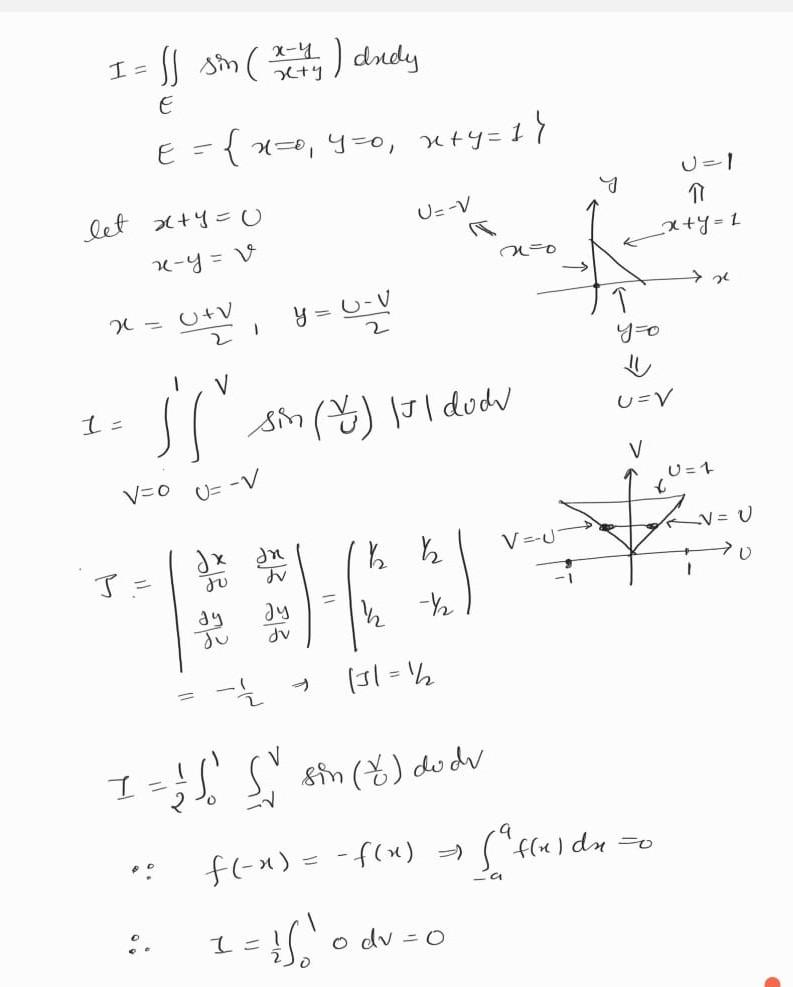 I = ∬_E sin( (x-y)/(x+y) ) dxdy
E = { x=0, y=0, x+y=1 }
let x+y = U
x-y = v
x = (U+V)/2 , y = (U-V)/2
y
U=1
⇑
x+y=1
U=-V
⇖
x=0
→
x
↑
y=0
⇓
U=V
I = ∫_{V=0}^{1} ∫_{U=-V}^{V} sin(V/U) |J| dudv
V
U=1
V=-U
V=U
U
-1
1
J = | ∂x/∂u ∂x/∂v | = | 1/2 1/2 |
| ∂y/∂u ∂y/∂v | | 1/2 -1/2 |
= -1/2 ⇒ |J| = 1/2
I = 1/2 ∫_0^1 ∫_{-V}^{V} sin(V/U) dudv
∵ f(-x) = -f(x) ⇒ ∫_{-a}^{a} f(x) dx = 0
∴ I = 1/2 ∫_0^1 0 dv = 0